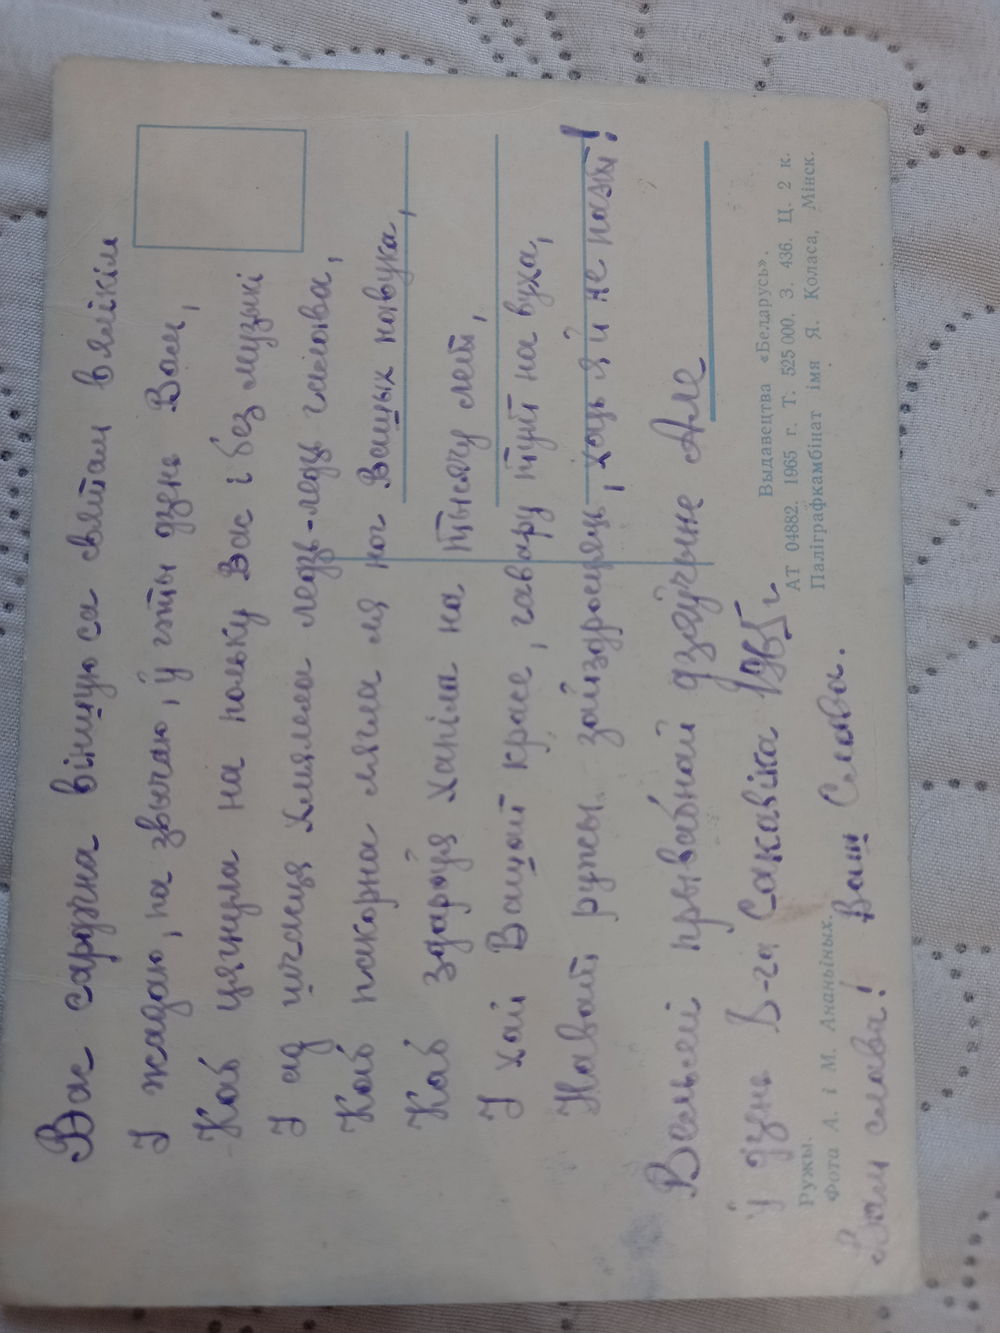 Вас сардэчна віншую са святам вялікім
І жадаю, па звычаю, ў гэты дзень Вам,
Каб цягнула на польку Вас і без музыкі
І ад шчасця хмялела ледзь-ледзь галава,
Каб пакорна лягла ля ног Вашых навука,
Каб здароўя хапіла на тысячу лет,
І хай Вашай красе, гавару тут на вуха,
Нават ружы зайздросцяць, хаць я й не паэт!
Вельмей прывабнай дзяўчыне Але
Ў дзень 8-га Сакавіка 1965 г.
Вам слава! Ваш Слава.
Ружы.
Фота А. і М. Ананьіных.
Выдавецтва «Беларусь».
АТ 04882. 1965 г. Т. 525 000. З. 436. Ц. 2 к.
Паліграфкамбінат імя Я. Коласа, Мінск.